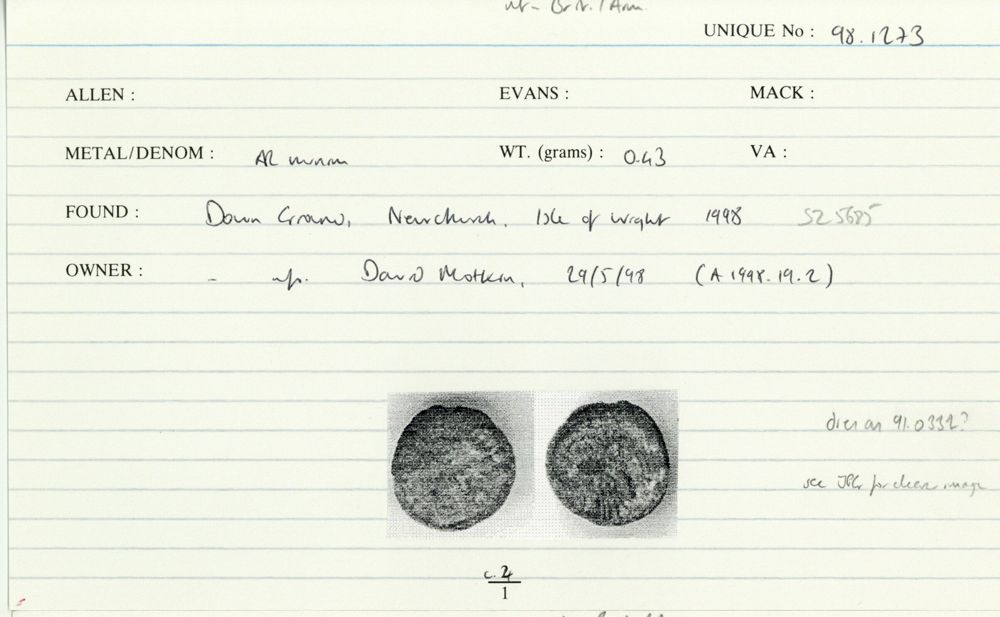 UNIQUE No : 98.1273
ALLEN : EVANS : MACK :
METAL/DENOM : AR minim WT. (grams) : 0.43 VA :
FOUND : Down Ground, Newchurch, Isle of Wight 1998 SZ 5685
OWNER : - inf. David Motkin, 29/5/98 (A 1998.19.2)
dies as 91.0332?
see for clearer image
c. 2/1